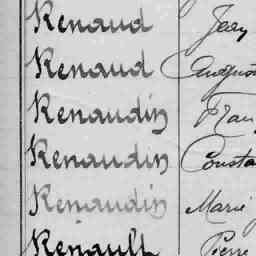 Renaud Jean
Renaud August
Renaudin Fran
Renaudin Consta
Renaudin Marie
Renault Pierre